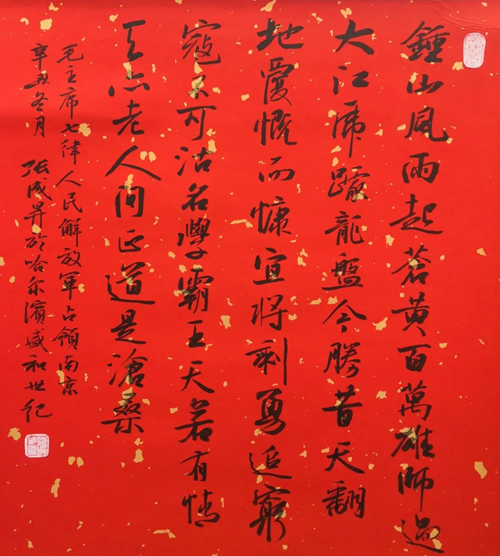 鍾山風雨起蒼黃百萬雄師過
大江虎踞龍盤今勝昔天翻
地覆慨而慷宜將剩勇追窮
寇不可沽名學霸王天若有情
天亦老人間正道是滄桑
毛主席七律人民解放軍占領南京
辛丑冬月 張成昇於哈尔濱盛和世纪